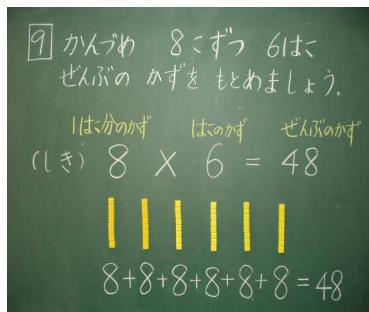 9 かんづめ 8こずつ 6はこ
ぜんぶの かずを もとめましょう。
1はこ分のかず はこのかず ぜんぶのかず
(しき) 8 × 6 = 48
8+8+8+8+8+8=48